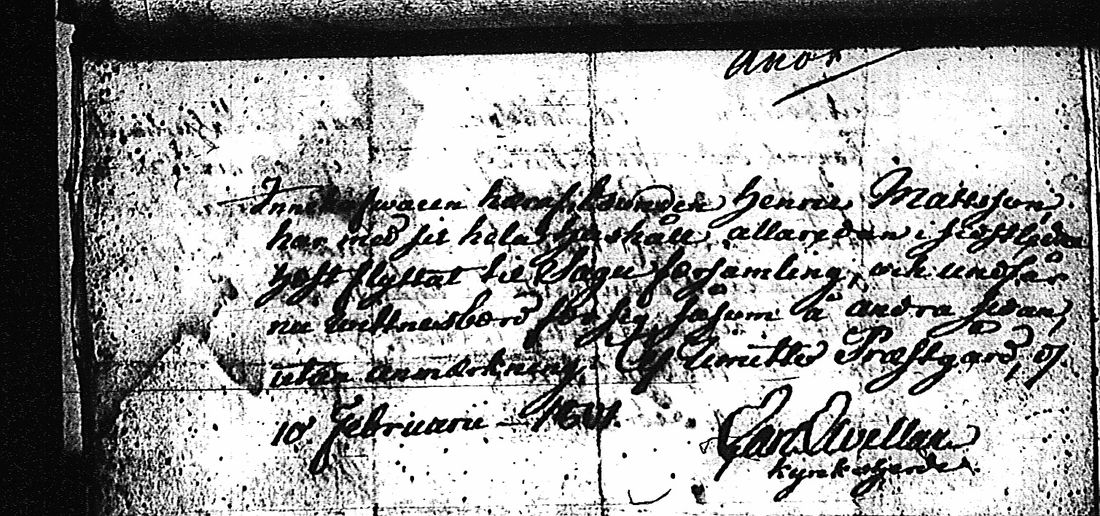 Innehafwaren häraf, Henric Mattsson,
har med sit hela hushåll, allaredan i sistledne
höst flyttat til Sagu församling, och undfår
nu wittnesbörd för sig såsom å andra sidan,
utan anmärkning, Uskela Præstgård, d
10 Februarii 1801.
Carl Avellan
kyrkoherde.